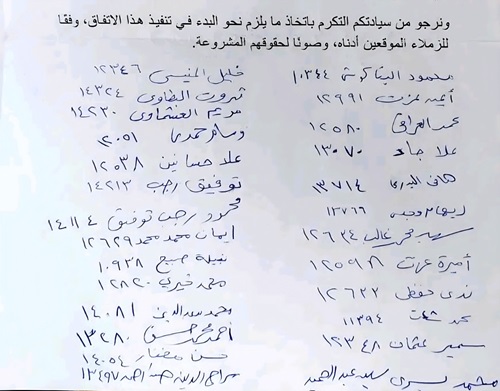 ونرجو من سيادتكم التكرم باتخاذ ما يلزم نحو البدء في تنفيذ هذا الاتفاق، وفقًا
للزملاء الموقعين أدناه، وصونًا لحقوقهم المشروعة.
محمود ١٠٣٤٤
أيمن عزت ١٢٩٩١
محمد العراقي ١٢٥٨٠
علا جاد ١٣٠٧٠
هاني البدري ١٣٧١٤
ريهام وجيه ١٣٧٦٦
غالب ١٢٦٣٤
أميرة عزت ١٢٥٩٨
ندى حفظي ١٢٦٢٢
محمد ١١٣٩٤
سمير عثمان ١٢٣٤٨
محمد يسري سيد عبد الحميد
خليل المنيسي ١٢٣٤٦
ثروت ١٤٣٢٤
مريم العشماوي ١٤٢٣٠
وسام حمدي ١٢٠٥١
علا حسانين ١٢٥٣٨
توفيق رجب ١٤٢١٣
محمود رجب توفيق ١٤١١٤
إيمان محمد محمد ١٢٦٢٩
نبيلة صبيح ١٠٩٣٨
محمد خيري ١٢٨٢٠
محمد بدر الدين ١٤٠٨١
أحمد محمد حسن ١٣٢٨٠
حسن مختار ١٤٠٥٤
سراج الدين أحمد ١٣٤٩٧